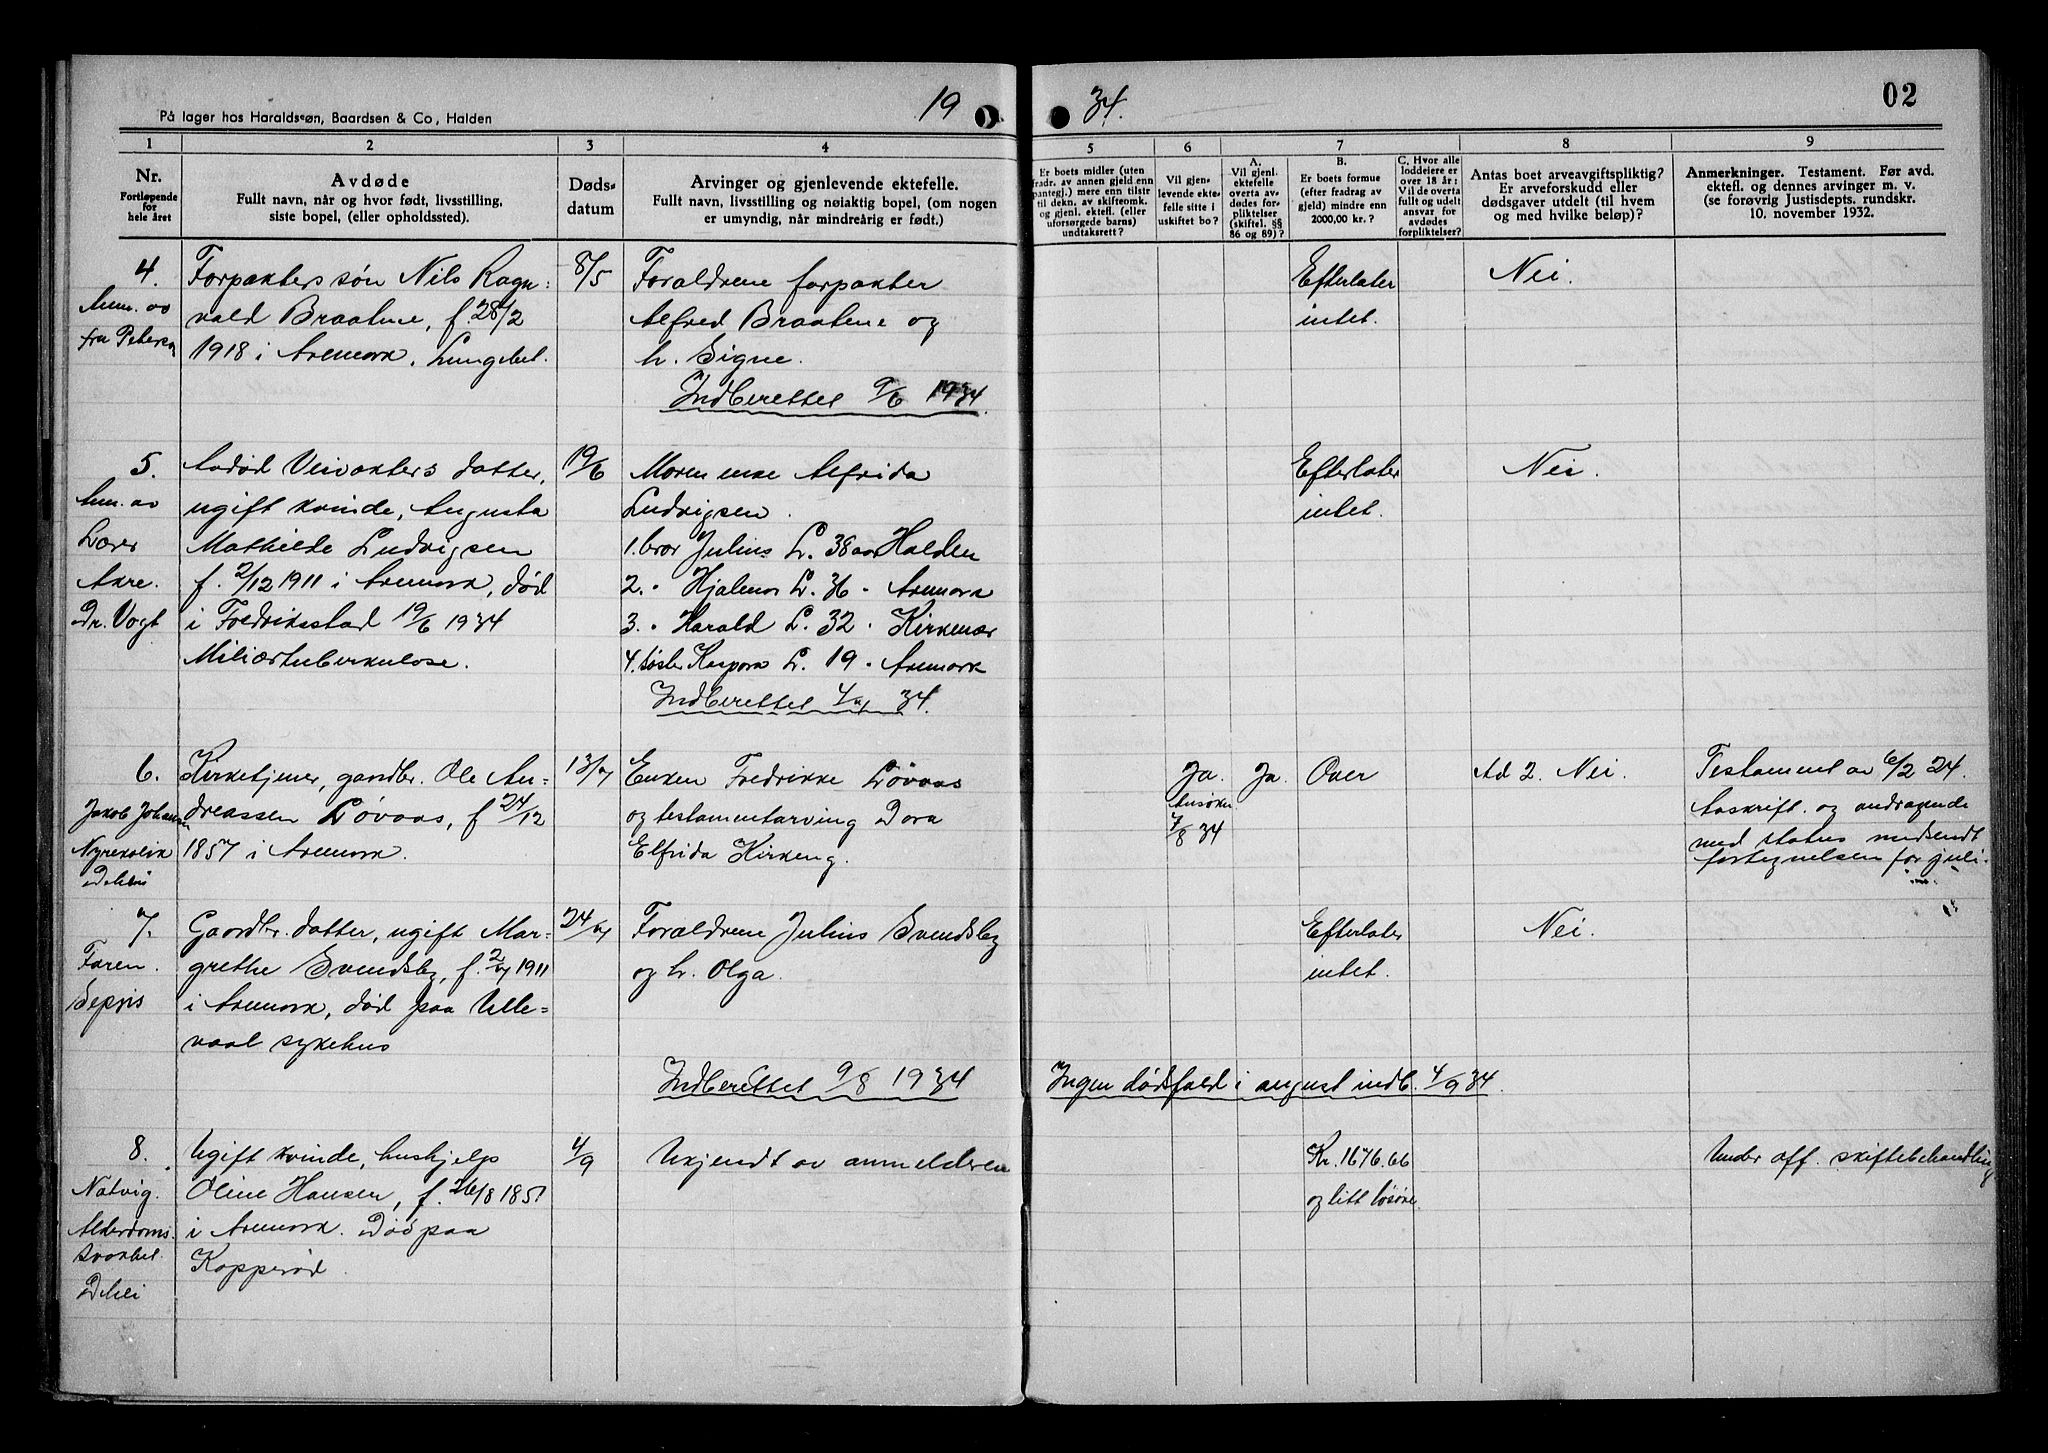 19 34.
02
På lager hos Haraldssøn, Baardsen & Co, Halden
1 2 3 4 5 6 7 8 9
Nr.
Fortløpende
for
hele året
Avdøde
Fullt navn, når og hvor født, livsstilling,
siste bopel, (eller opholdssted).
Døds-
datum
Arvinger og gjenlevende ektefelle.
Fullt navn, livsstilling og nøiaktig bopel, (om nogen
er umyndig, når mindreårig er født.)
Er boets midler (uten
fradr. av annen gjeld enn
pantegj.) mere enn tilstr
til dekn. av skifteomk.
og gjenl. ektef. (eller
uforsørgede barns)
undtaksrett?
Vil gjen-
levende ekte-
felle sitte i
uskiftet bo?
A.
Vil gjenl.
ektefelle
overta av-
dødes for-
pliktelser
(skiftel. §§
86 og 89)?
B.
Er boets formue
(efter fradrag av
gjeld) mindre enn
2000,00 kr.?
C. Hvor alle
loddeiere er
over 18 år:
Vil de overta
fullt og udelt
ansvar for
avdødes
forpliktelser?
Antas boet arveavgiftspliktig?
Er arveforskudd eller
dødsgaver utdelt (til hvem
og med hvilke beløp)?
Anmerkninger. Testament. Før avd.
ektefl. og dennes arvinger m. v.
(se forøvrig Justisdepts. rundskr.
10. november 1932.
4.
Anm. av
fru Peterson
Forpakters søn Nils Ragn-
vald Braatene, f. 28/2
1918 i Aremark. Lungebet.
8/5
Forældrene forpakter
Alfred Braatene og
h. Signe.
Indberettet 9/6 1934.
Efterlater
intet.
Nei.
5.
Anm. av
Lærer
Akre.
Dr. Vogt
Avdød Veivokters datter,
ugift kvinde, Augusta
Mathilde Ludvigsen
f. 2/12 1911 i Aremark, død
i Fredriksstad 19/6 1934
Miliærtuberkulose.
19/6
Moren enke Alfrida
Ludvigsen.
1. bror Julius L. 38 aar Halden
2. " Hjalmar L. 36 " Aremark
3. " Harald L. 32 " Kirkenær
4. søster Kaspara L. 19 " Aremark
Indberettet 4/7 34.
Efterlater
intet.
Nei.
6.
Jakob Johansen
Nyrekolik
Kirketjener, gaardbr. Ole An-
dreassen Løvaas, f 24/12
1857 i Aremark.
13/7
Enken Fredrikke Løvaas
og testamentarving Dora
Elfrida Kirkeng.
Ja.
Ansøkn.
7/8 34
Ja.
Over
Ad 2. Nei.
Testament av 6/2 24.
Avskrift og andragende
med status medsendt
fortegnelsen for juli.
7.
Faren.
Sepsis
Gaardbr. datter, ugift Mar-
grethe Svendsby, f. 2/7 1911
i Aremark, død paa Ulle-
vaal sykehus
24/7
Forældrene Julius Svendsby
og h. Olga.
Indberettet 9/8 1934
Efterlater
intet.
Nei.
Ingen dødsfald i august indb. 4/9 34.
8.
Natvig.
Alderdoms-
svakhet.
Ugift kvinde, hushjelp
Oline Hansen, f. 26/8 1851
i Aremark. Død paa
Kopperød.
4/9
Ukjendt av anmelderen
Kr. 1676.66
og litt løsøre.
Under off. skiftebehandling